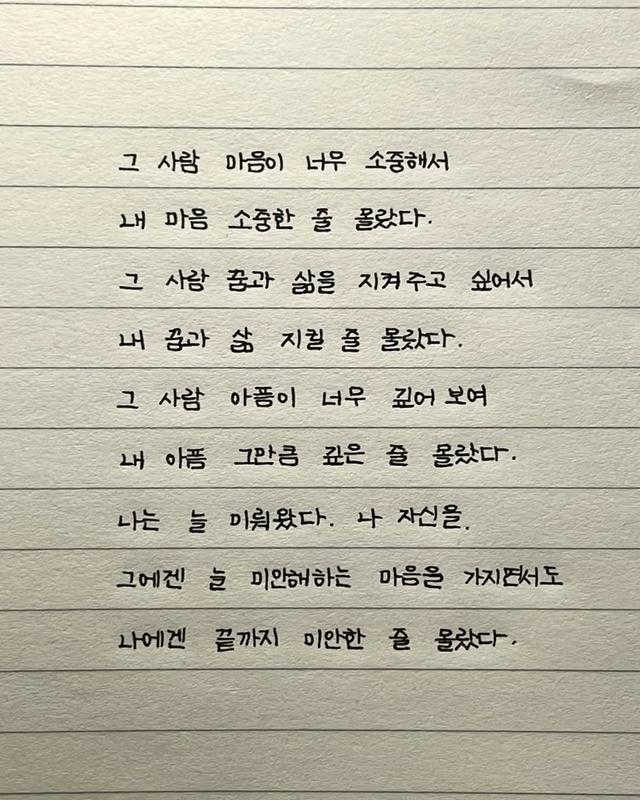 그 사람 마음이 너무 소중해서
내 마음 소중한 줄 몰랐다.
그 사람 꿈과 삶을 지켜주고 싶어서
내 꿈과 삶 지킬 줄 몰랐다.
그 사람 아픔이 너무 깊어 보여
내 아픔 그만큼 깊은 줄 몰랐다.
나는 늘 미뤄왔다. 나 자신을.
그에겐 늘 미안해하는 마음을 가지면서도
나에겐 끝까지 미안한 줄 몰랐다.